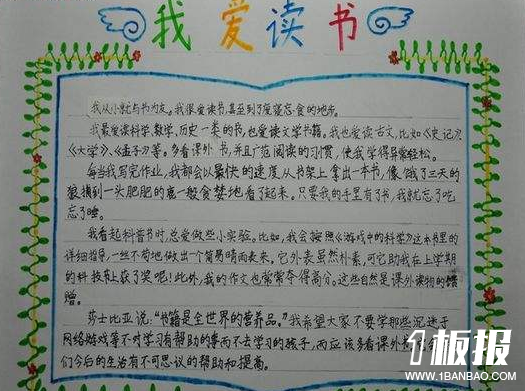 我爱读书
我从小就与书为友。我很爱读书,甚至到了废寝忘食的地步。
我最爱读科学、数学、历史一类的书,也爱读文学书籍。我也爱读古文,比如《史记》、
《大学》、《孟子》等。多看课外书,并且广范阅读的习惯,使我学得异常轻松。
每当我写完作业,我都会以最快的速度从书架上拿出一本书,像饿了三天的
狼猎到一头肥肥的鹿一般贪婪地看了起来。只要我的手里有了书,我就忘了吃
忘了睡。
我看起科普书时,总爱做些小实验。比如,我会按照《游戏中的科学》这本书里的
详细指导,一丝不苟地做出个简易晴雨表来。它外表虽然朴素,可它助我在上学期
的科技节上获了奖呢!此外,我的作文也常常夺得高分。这些自然是课外读物的
赠。
莎士比亚说:“书籍是全世界的营养品。”我希望大家不要学那些沉迷于
网络游戏等不对学习有帮助的事而不去学习的孩子,而应该多看课外书
们今后的生活有不可思议的帮助和提高。
板报
WWW.1BANBAO.COM